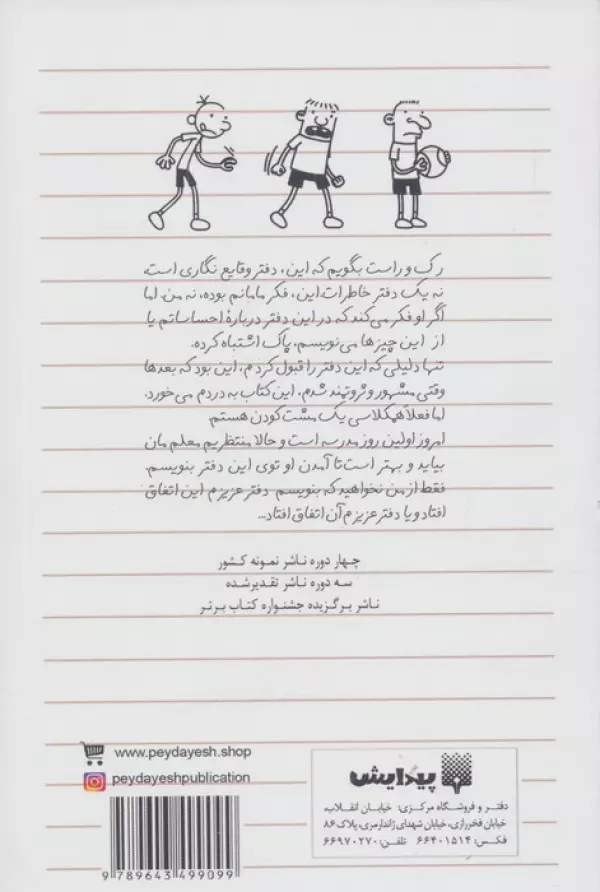 رک و راست بگویم که این، دفتر وقایع نگاری است،
نه یک دفتر خاطرات. این، فکر مامانم بوده، نه من. اما
اگر او فکر می‌کند که در این دفتر دربارهٔ احساساتم یا
از این چیزها می‌نویسم، پاک اشتباه کرده.
تنها دلیلی که این دفتر را قبول کردم، این بود که بعدها
وقتی مشهور و ثروتمند شدم، این کتاب به دردم می‌خورد.
اما فعلاً همکلاسی یک مشت کودن هستم
امروز اولین روز مدرسه است و حالا منتظریم معلم مان
بیاید و بهتر است تا آمدن او توی این دفتر بنویسم.
فقط از من نخواهید که بنویسم دفتر عزیزم این اتفاق
افتاد و یا دفتر عزیزم آن اتفاق افتاد...
چهار دوره ناشر نمونه کشور
سه دوره ناشر تقدیر شده
ناشر برگزیده جشنواره کتاب برتر
www.peydayesh.shop
peydayeshpublication
9 789643 499099
پیدایش
دفتر و فروشگاه مرکزی: خیابان انقلاب،
خیابان فخررازی، خیابان شهدای ژاندارمری، پلاک ۸۶
فکس: ۶۶۴۰۱۵۱۴ تلفن: ۶۶۹۷۰۲۷۰